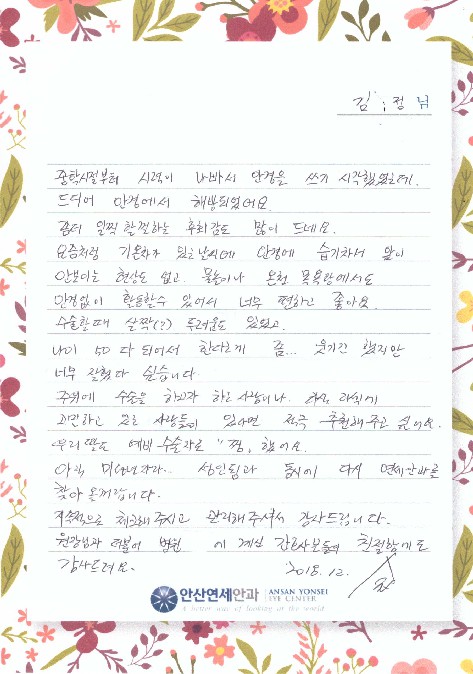 김 정 님
중학시절부터 시력이 나빠서 안경을 쓰기 시작했었는데.
드디어 안경에서 해방되었어요.
좀더 일찍 할껄하는 후회감도 많이 드네요.
요즘처럼 기온차가 있는날씨에 안경에 습기차서 앞이
안보이는 현상도 없고. 물놀이나 온천 목욕탕에서도
안경없이 활동할수 있어서 너무 편하고 좋아요.
수술할때 살짝(?) 두려움도 있었고.
나이 50 다 되어서 한다는게 좀... 웃기긴 했지만
너무 잘했다 싶습니다.
주위에 수술을 하고자 하는 사람이나. 라식에
고민하고 있는 사람들이 있다면 적극 추천해주고 싶네요.
우리 딸도 예비 수술자로 "찜" 했어요.
아직 미성년자라.. 성인됨과 동시에 다시 연세안과로
찾아 올꺼랍니다.
지속적으로 체크해주시고 관리해주셔서 감사드립니다.
원장님과 더불어 병원에 계신 간호사분들의 친절함에도
감사드려요. 2018. 12.
안산연세안과 ANSAN YONSEI EYE CENTER
A better way of looking at the world